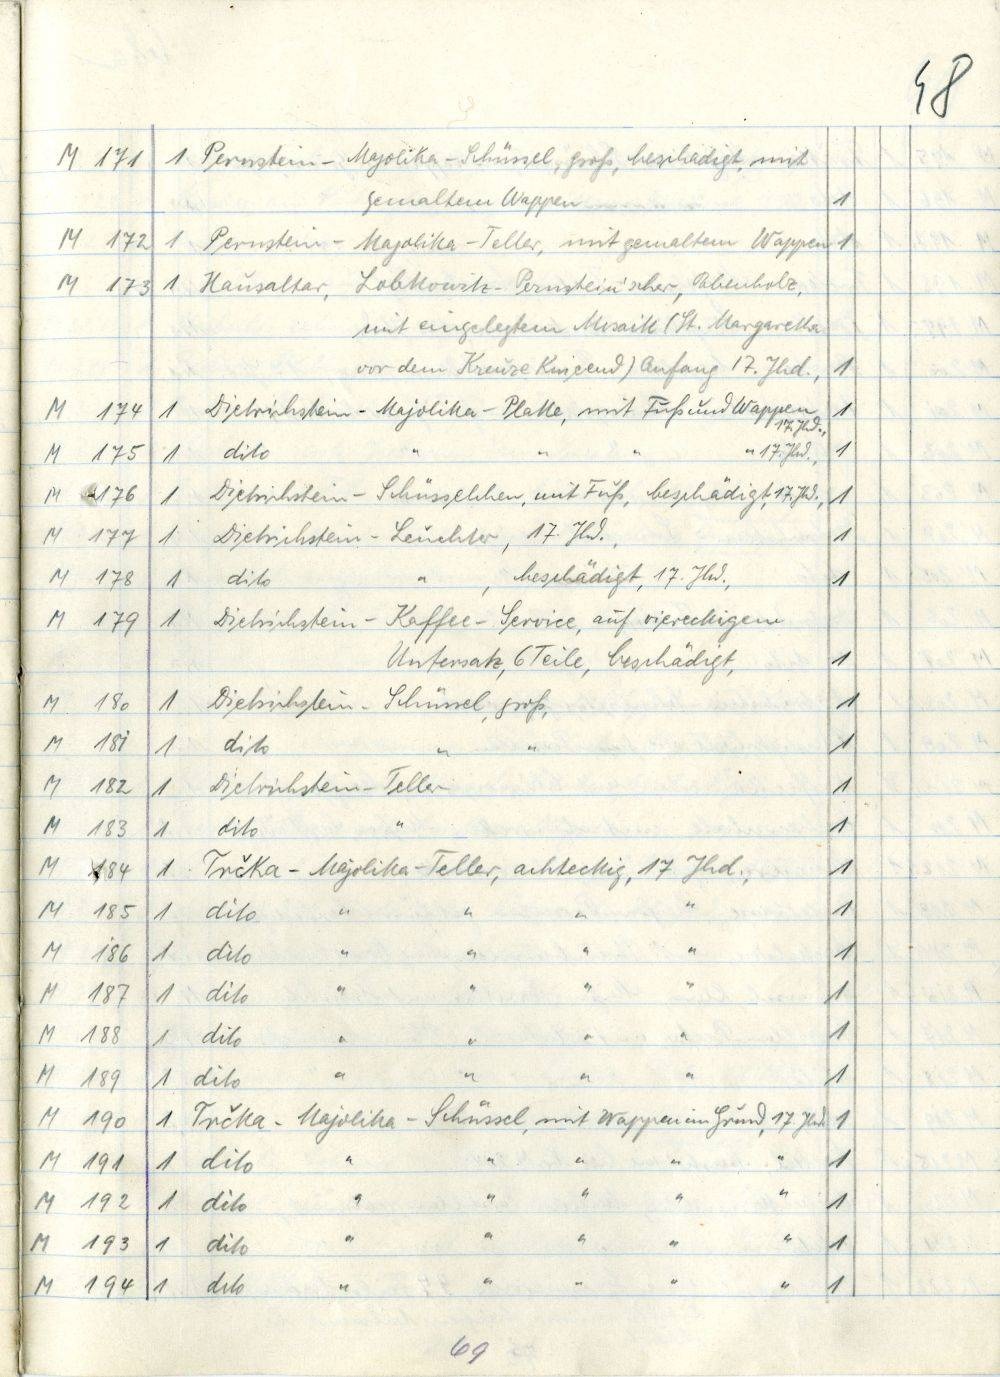 48
M 171 1 Pernstein - Majolika - Schüssel, groß, beschädigt, mit
gemaltem Wappen 1
M 172 1 Pernstein - Majolika - Teller, mit gemaltem Wappen 1
M 173 1 Hausaltar, Lobkowitz - Pernstein'scher, Ebenholz,
mit eingelegtem Mosaik (St. Margaretha
vor dem Kreuze Knieend) Anfang 17. Jhd., 1
M 174 1 Dietrichstein - Majolika - Platte, mit Fuß und Wappen 1
17. Jhd.,
M 175 1 dito " " " " 17. Jhd., 1
M 176 1 Dietrichstein - Schüsselchen, mit Fuß, beschädigt, 17. Jhd., 1
M 177 1 Dietrichstein - Leuchter, 17. Jhd., 1
M 178 1 dito " , beschädigt, 17. Jhd., 1
M 179 1 Dietrichstein - Kaffee - Service, auf viereckigem
Untersatz, 6 Teile, beschädigt, 1
M 180 1 Dietrichstein - Schüssel, groß, 1
M 181 1 dito " " 1
M 182 1 Dietrichstein - Teller 1
M 183 1 dito " 1
M 184 1 Trčka - Majolika - Teller, achteckig, 17 Jhd., 1
M 185 1 dito " " " " 1
M 186 1 dito " " " " 1
M 187 1 dito " " " " 1
M 188 1 dito " " " " 1
M 189 1 dito " " " " 1
M 190 1 Trčka - Majolika - Schüssel, mit Wappen im Grund, 17. Jhd. 1
M 191 1 dito " " " " " 1
M 192 1 dito " " " " " 1
M 193 1 dito " " " " " 1
M 194 1 dito " " " " " 1
69